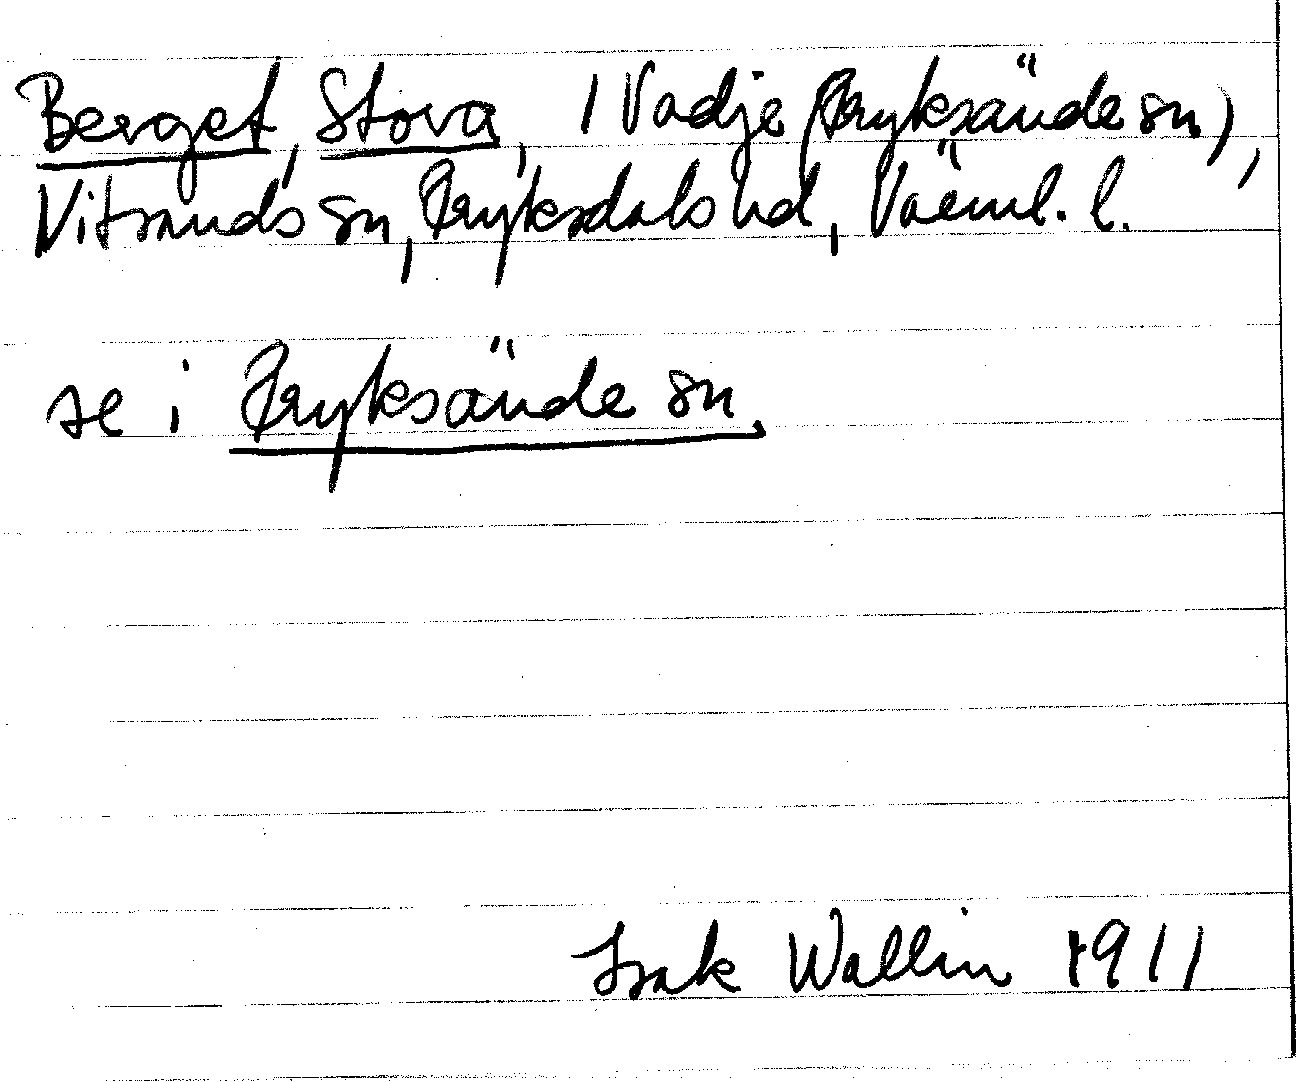 Berget, Stora, / Vadje (Fryksände sn),
Vitsands sn, Fryksdals hd, Värml. l.
se i Fryksände sn.
Isak Wallin 1911